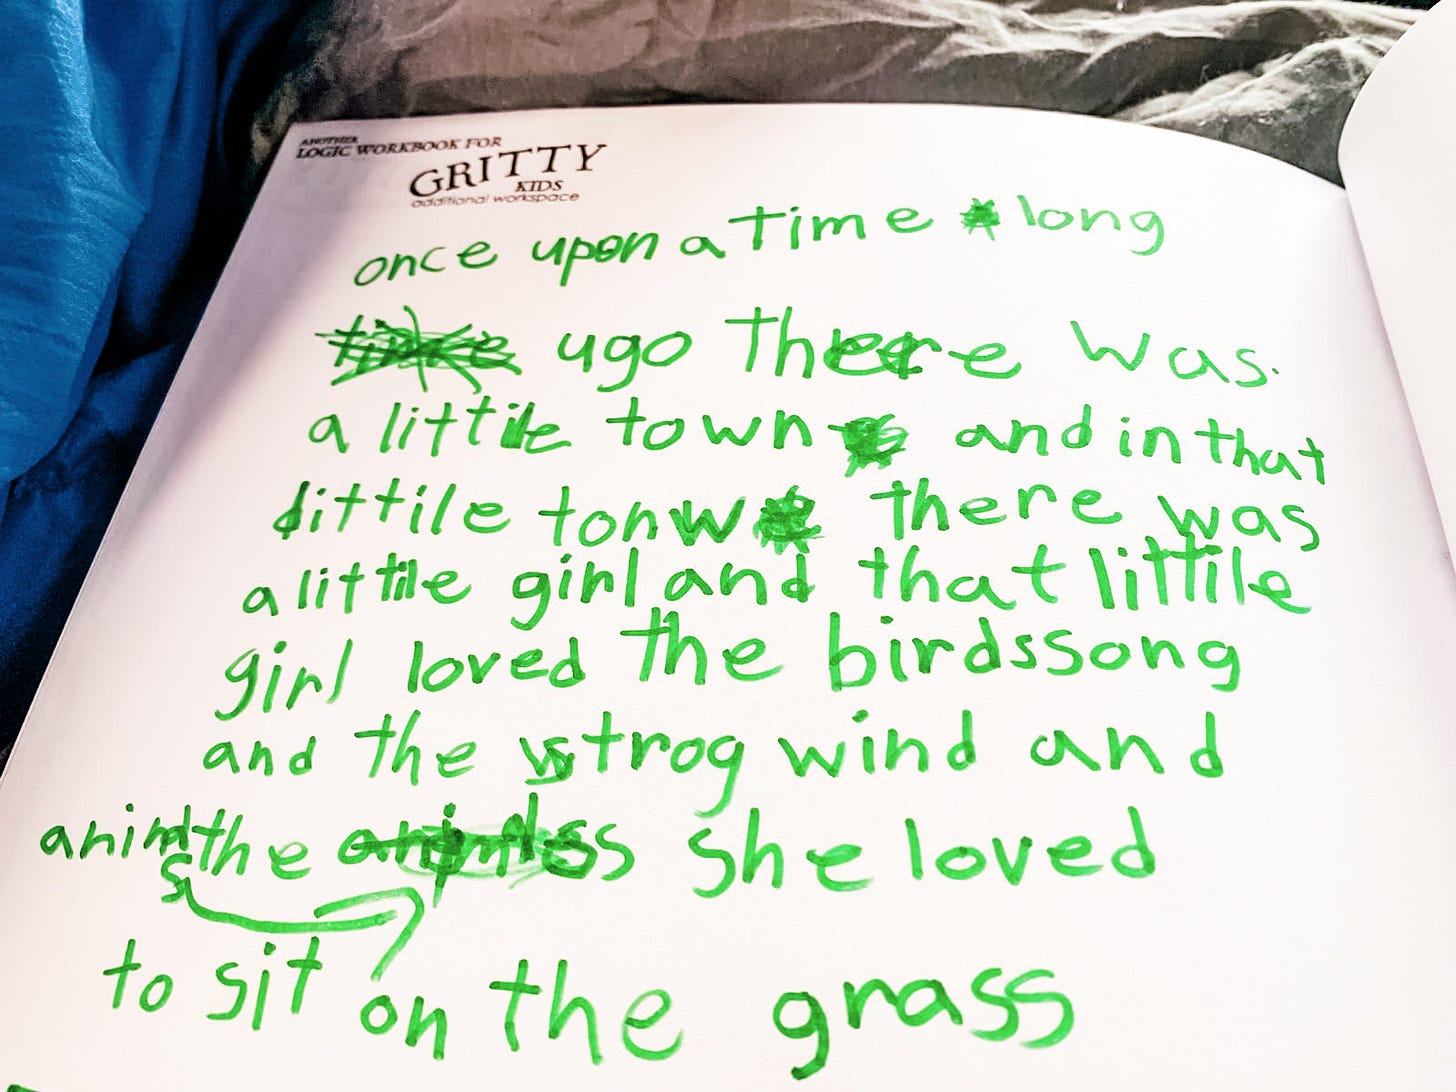 ANOTHER
LOGIC WORKBOOK FOR
GRITTY
KIDS
additional workspace
once upon a time long
ugo there was.
a little town and in that
littile tonw there was
a littile girl and that littile
girl loved the birdssong
and the strog wind and
the she loved
to sit on the grass